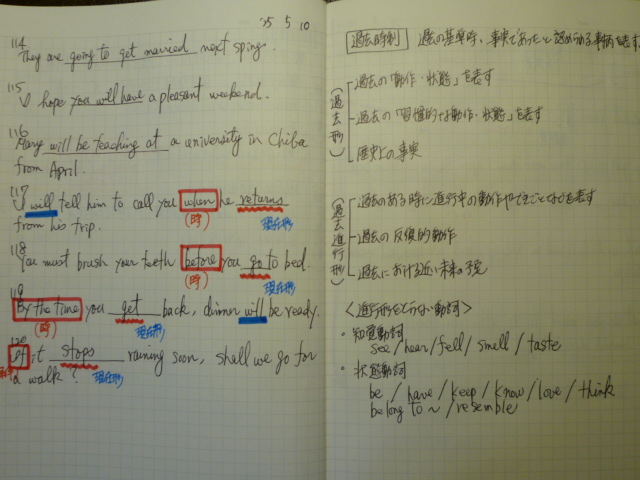 '15 5 10
114
They are going to get married next sping.
115
I hope you will have a pleasant weekend.
116
Mary will be teaching at a university in Chiba
from April.
117
I will tell him to call you when he returns
(時) 現在形
from his trip.
118
You must brush your teeth before you go to bed.
(時) 現在形
119
By the time you get back, dinner will be ready.
(時) 現在形
120
If it stops raining soon, shall we go for
現在形
a walk?
過去時制 過去の基準時、事実であったと認められる事柄を表す
(過去形)
過去の「動作・状態」を表す
過去の「習慣的な動作・状態」を表す
歴史上の事実
(過去進行形)
過去のある時に進行中の動作やできごとなどを表す
過去の反復的動作
過去における近い未来の予定
<進行形をとらない動詞>
・知覚動詞
see / hear / fell / smell / taste
・状態動詞
be / have / keep / know / love / think
belong to ~ / resemble